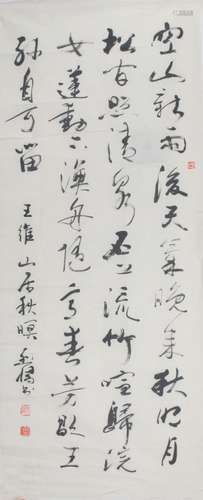 空山新雨後天氣晚來秋明月
松間照清泉石上流竹喧歸浣
女蓮動下漁舟隨意春芳歇王
孫自可留
王維山居秋暝